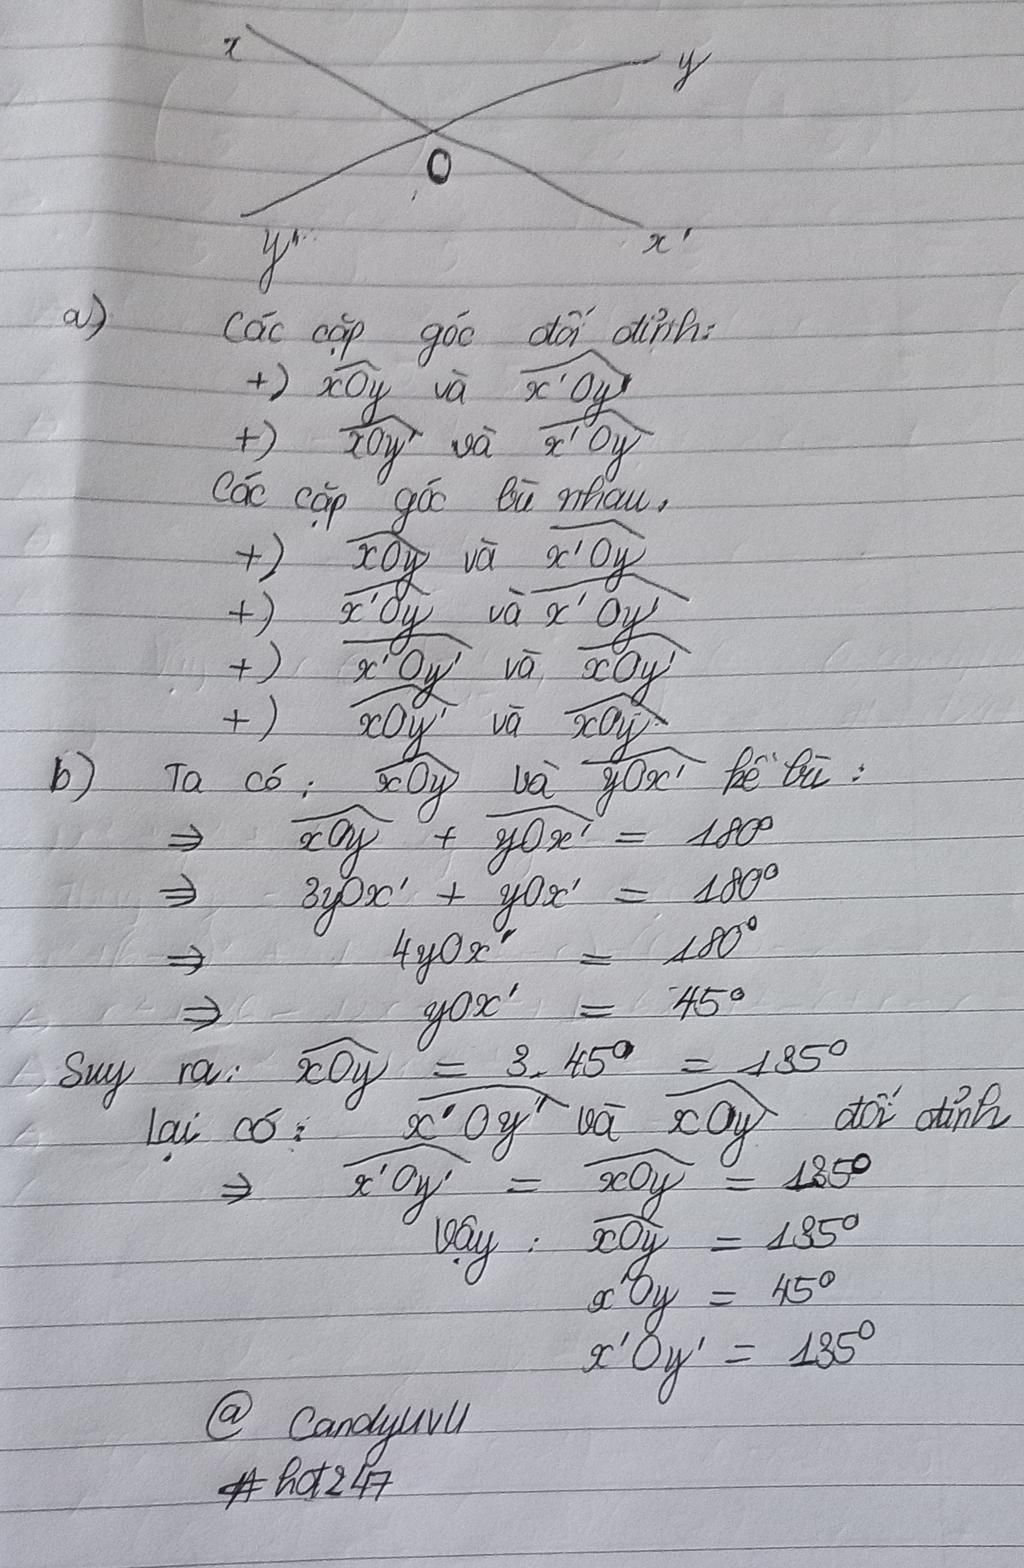 x
y
O
y'
x'
a) Các cặp góc đối đỉnh:
+) xOy và x'Oy'
+) xOy' và x'Oy
Các cặp góc bù nhau.
+) xOy và x'Oy
+) x'Oy và x'Oy'
+) x'Oy' và xOy'
+) xOy' và xOy
b) Ta có: xOy và yOx' kề bù:
⇒ xOy + yOx' = 180°
⇒ 3yOx' + yOx' = 180°
⇒ 4yOx' = 180°
⇒ yOx' = 45°
Suy ra: xOy = 3.45° = 135°
Lại có: x'Oy' và xOy đối đỉnh
⇒ x'Oy' = xOy = 135°
Vậy: xOy = 135°
x'Oy = 45°
x'Oy' = 135°
@ Candyuvu
# hot247